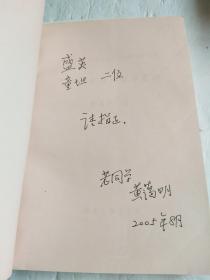 盛英
童坦 二位
请指正.
老同学
黄蔼明
2005年8月